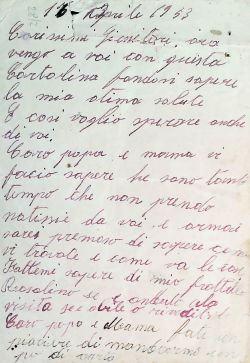 16 - Aprile 1953
Carissimi Genitori, ora
vengo a voi con questa
Cartolina fandovi sapere
la mia otima salute
E cosi voglio sperare anche
di voi.
Caro papa e mama vi
facio sapere he sono tanto
tempo che non prendo
natissie da voi, e ormai
sarei premoso di sapere come
vi trovate e come va le cose
Fatteme sapere di mio frattello
se e andato ala
visita se e abile o
Caro papa e Mama
di
po di vario